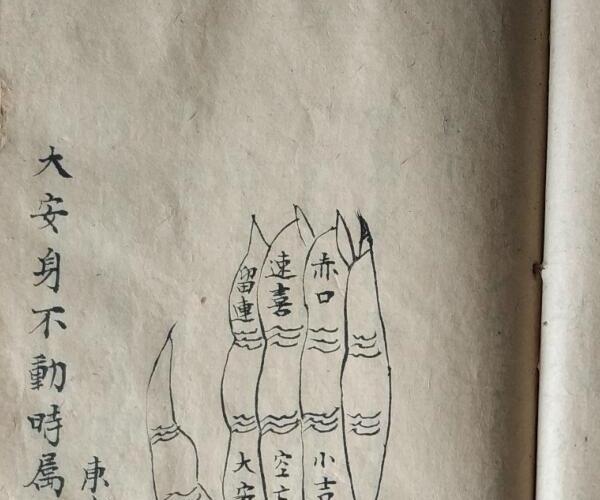 赤口
速喜
留連
小吉
空亡
大安
大安身不動時属
東